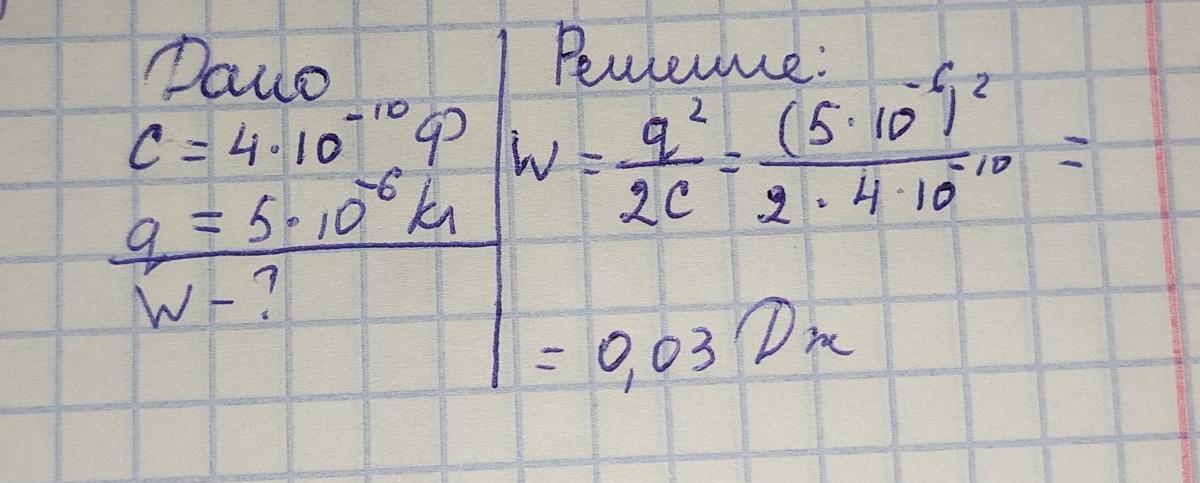 Дано
C = 4·10⁻¹⁰ Ф
q = 5·10⁻⁶ Кл
W - ?
Решение:
W = q²/2C = (5·10⁻⁶)²/2·4·10⁻¹⁰ =
= 0,03 Дж